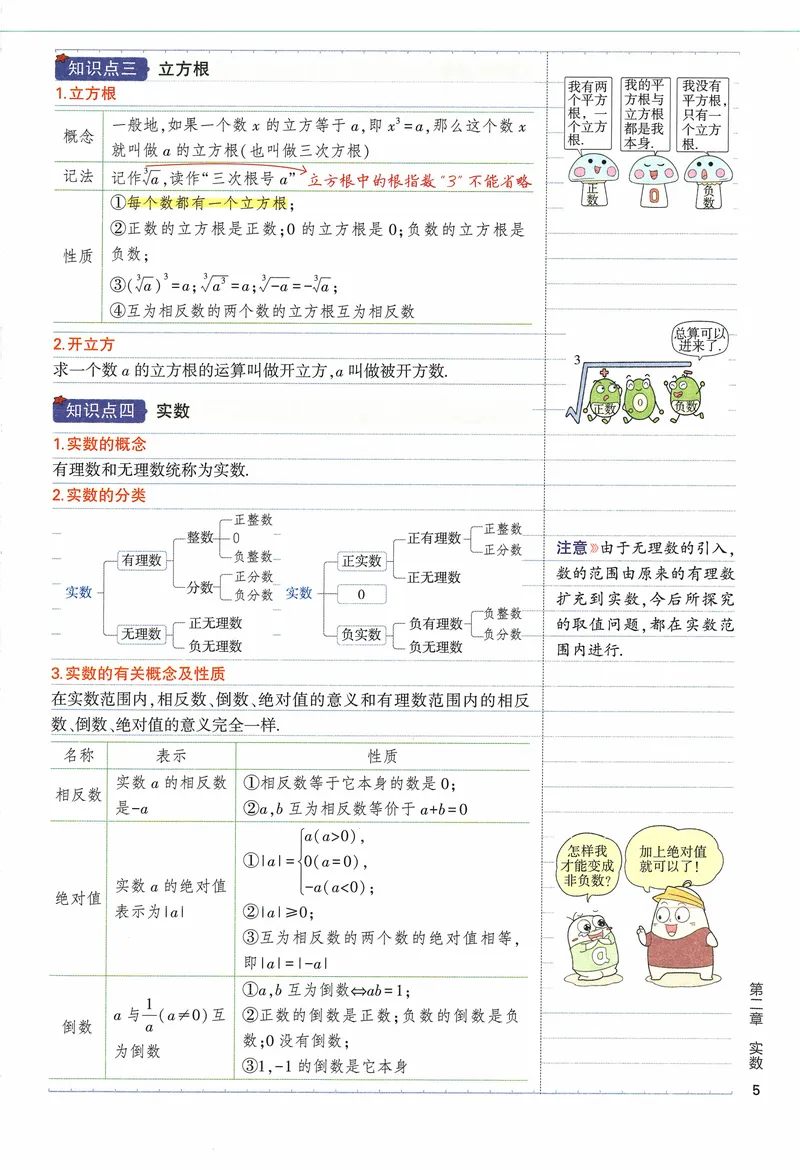 知识点三 立方根
1.立方根
概念
一般地,如果一个数 x 的立方等于 a,即 x³=a,那么这个数 x
就叫做 a 的立方根(也叫做三次方根)
记法
记作∛a,读作“三次根号 a” 立方根中的根指数“3”不能省略
性质
①每个数都有一个立方根;
②正数的立方根是正数;0 的立方根是 0;负数的立方根是
负数;
③(∛a)³=a;∛a³=a;∛-a=-∛a;
④互为相反数的两个数的立方根互为相反数
2.开立方
求一个数 a 的立方根的运算叫做开立方,a 叫做被开方数.
知识点四 实数
1.实数的概念
有理数和无理数统称为实数.
2.实数的分类
实数
有理数
整数
正整数
0
负整数
分数
正分数
负分数
无理数
正无理数
负无理数
实数
正实数
正有理数
正整数
正分数
正无理数
0
负实数
负有理数
负整数
负分数
负无理数
3.实数的有关概念及性质
在实数范围内,相反数、倒数、绝对值的意义和有理数范围内的相反
数、倒数、绝对值的意义完全一样.
名称 表示 性质
相反数
实数 a 的相反数
是-a
①相反数等于它本身的数是 0;
②a,b 互为相反数等价于 a+b=0
绝对值
实数 a 的绝对值
表示为|a|
a(a>0),
①|a|={0(a=0),
-a(a<0);
②|a|≥0;
③互为相反数的两个数的绝对值相等,
即|a|=|-a|
倒数
a 与1/a(a≠0)互
为倒数
①a,b 互为倒数⇔ab=1;
②正数的倒数是正数;负数的倒数是负
数;0 没有倒数;
③1,-1 的倒数是它本身
我有两
个平方
根,一
个立方
根.
正数
我的平
方根与
立方根
都是我
本身.
0
我没有
平方根,
只有一
个立方
根.
负数
总算可以
进来了.
3
正数
0
负数
注意》由于无理数的引入,
数的范围由原来的有理数
扩充到实数,今后所探究
的取值问题,都在实数范
围内进行.
怎样我
才能变成
非负数?
加上绝对值
就可以了!
a
第二章 实数
5